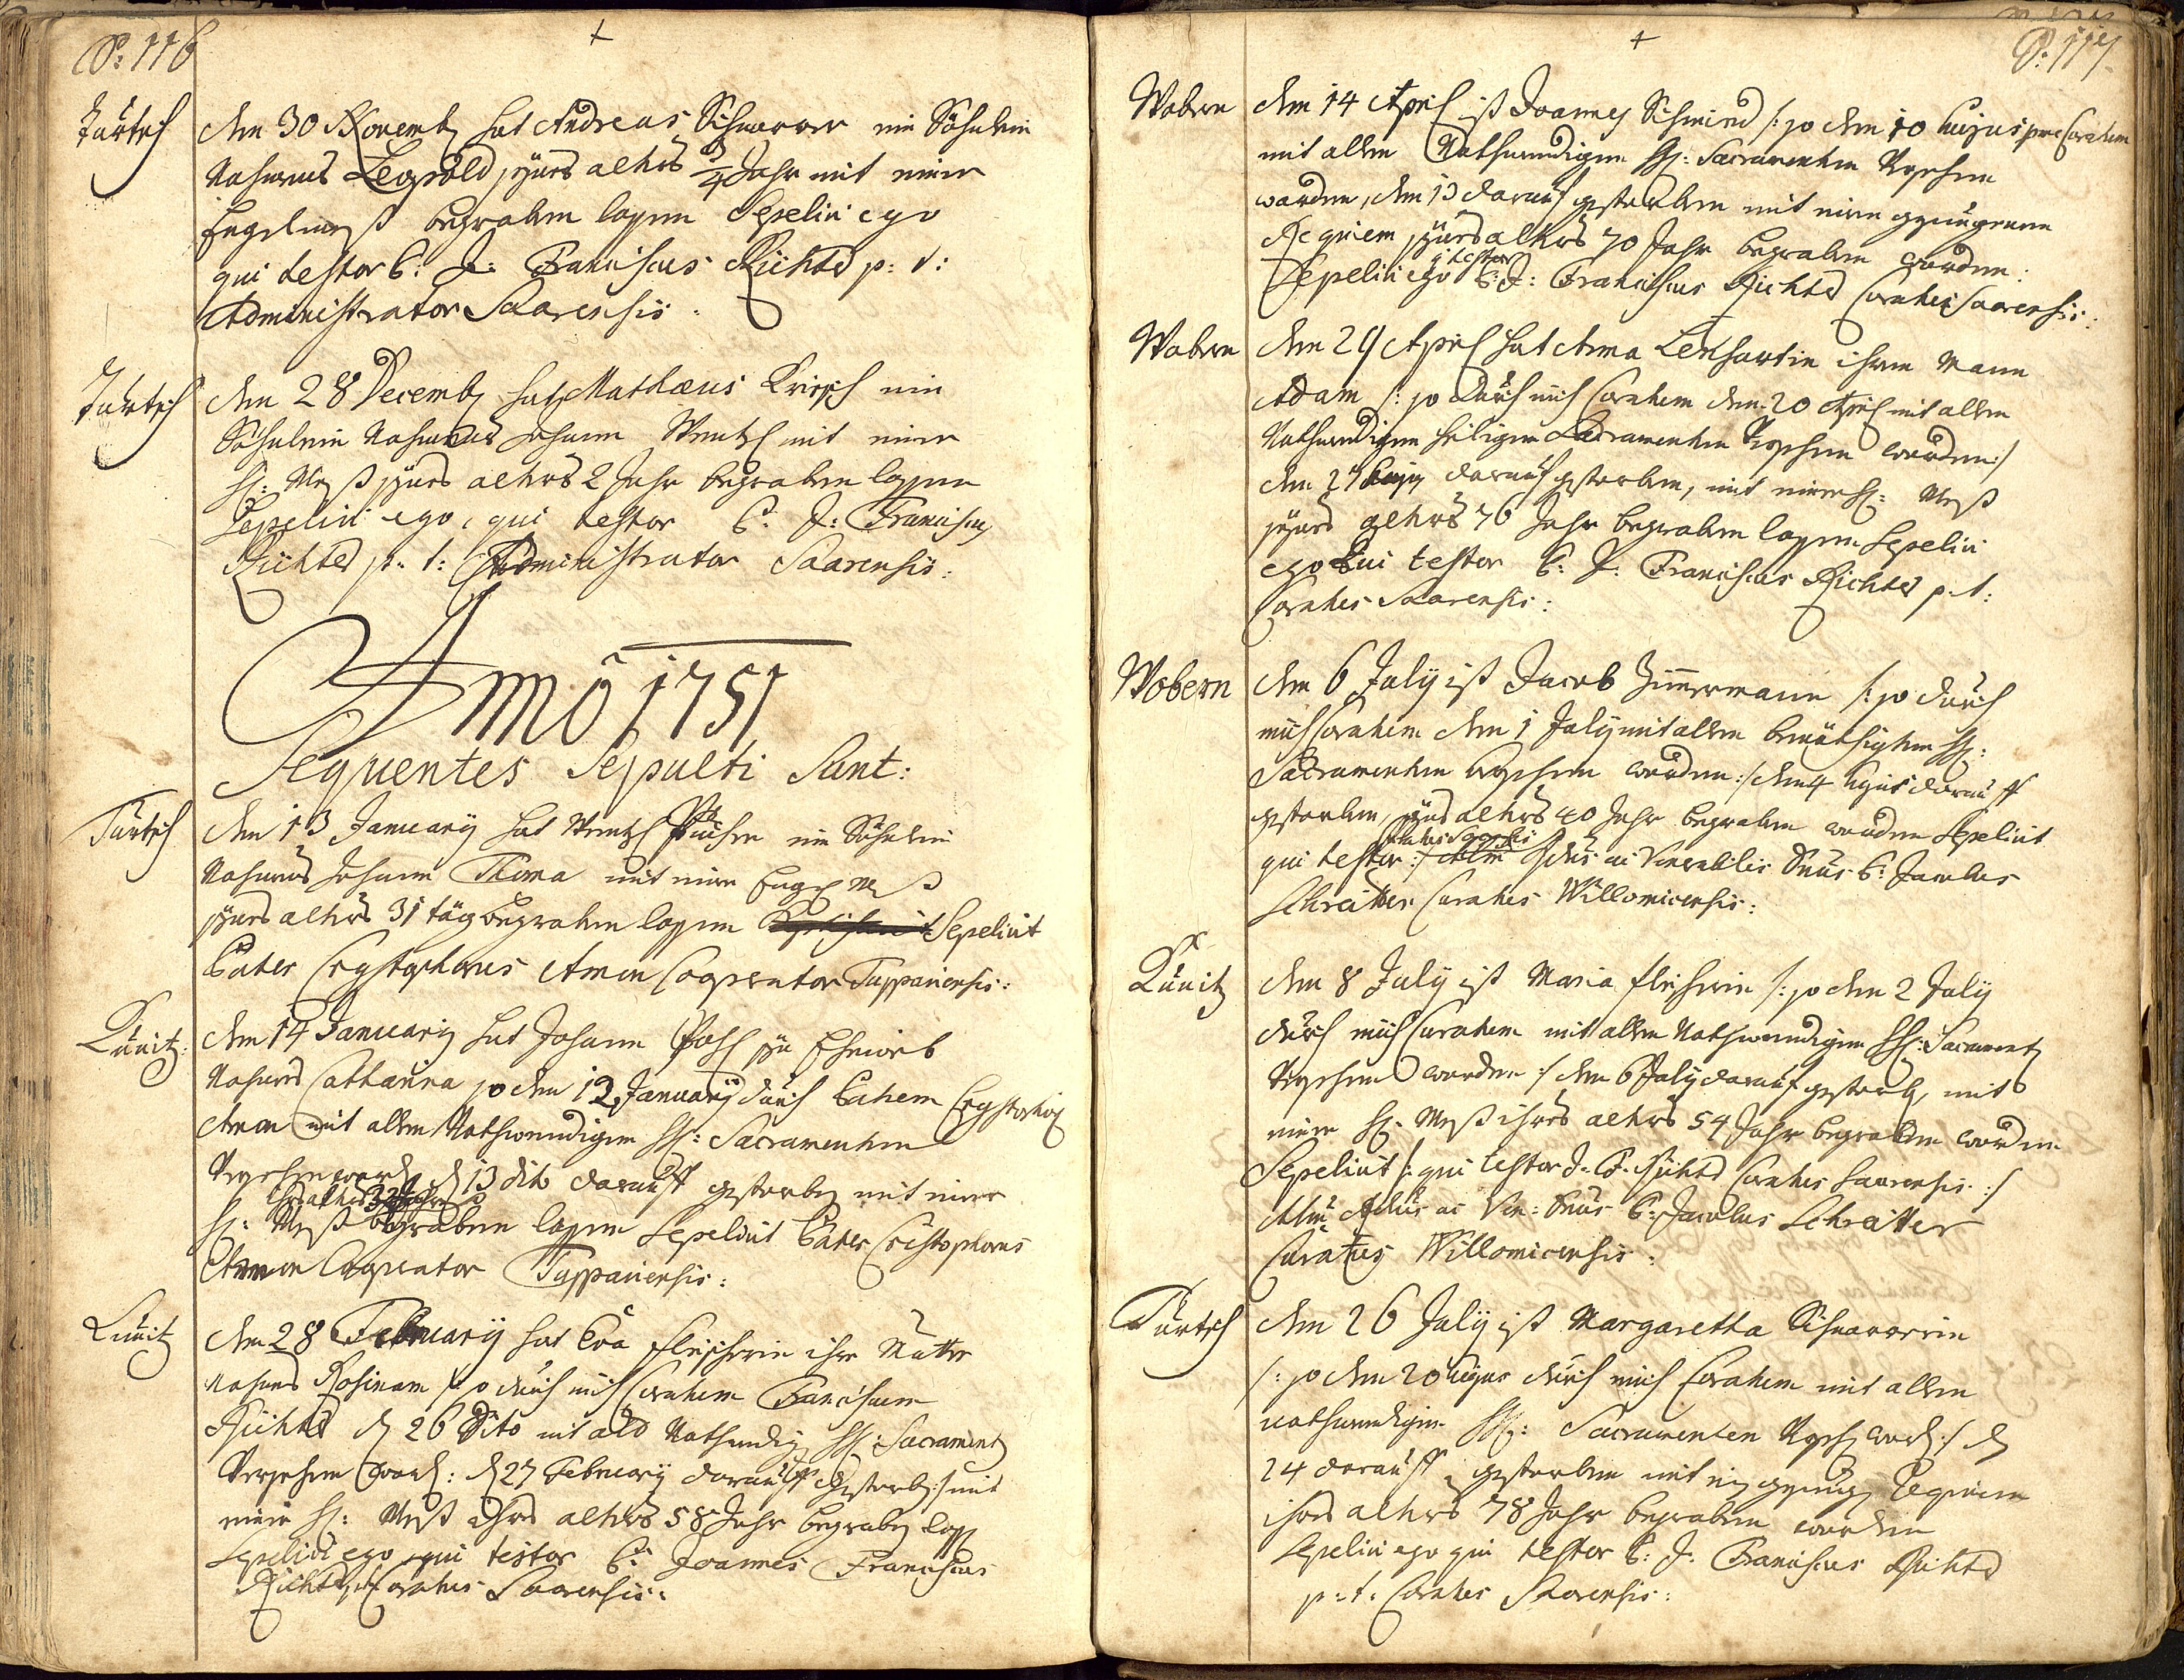 P: 116
Türtsch
den 30 Novemb hat Andreas Schnaerer ein Söhnlein
Nahmens Leopold seines alters 5/4 Jahr mit einer
Engelmeß begraben lassen Sepelivi ego
qui testor P: J: Franciscus Richter p: t:
Administrator Saarensis:
Türtsch
den 28 Decemb hat Mathaeus ein
Söhnlein Nahmens Johann Wentzl mit einer
H: Meß seines alters 2 Jahr begraben lassen
Sepelivi ego, qui testor P: J: Franciscus
Richter p: t: Administrator Saarensis:
Anno 1751
Sequentes Sepulti Sunt:
Türtsch
den 13 January hat Wentzl ein Söhnlein
Nahmens Johann Thoma mit einer Engl Meß
seines alters 31 täg begraben lassen Sepelivit
Pater Amon Cooperator Tuppauensis:
Künitz:
den 14 January hat Johann Pohl sein Eheweib
Nahmens Cathanna so den 12 January durch Patrem
Amon mit allen Nothwendigen HH: Sacramenten
Versehen word, d 13 dito darauff gestorben mit einer
ihres alters 32 Jahre
H: Meß begraben lassen Sepelivit Pater Cristophorus
Amon Cooperator Tuppauensis:
Künitz
den 28 February hat Eva Fleischerin ihre Mutter
Nahmens Rosinam /: so durch mich Curatum Franciscum
Richter d 26 Dito mit alle Nothwendig HH: Sacrament
Versehen word: d 27 February darauff gestorb :/ mit
einer H: Meß ihres alters 58 Jahr begraben lass
Sepelivi ego qui testor P: Joannes Franciscus
Richter, Curatus Saarensis:
P: 117
Wobern
den 14 April ist Joannes Schmied /: so den 10 hujus per me Curatum
mit allen Nothwendigen HH: Sacramenten Versehen
worden, den 13 darauf gestorben mit einen gesungenen
Requiem seines alters 70 Jahr begraben worden:
qui testor
Sepelivi ego P: J: Franciscus Richter Curatus Saarensis:
Wobern
den 29 April hat Anna Lenhartin ihren Mann
Adam /: so durch mich Curatum den 20 April mit allen
Nothwendigen heiligen Sacramenten Versehen worden :/
den 27 hujus darauf gestorben, mit einer H: Meß
seines alters 76 Jahr begraben lassen Sepelivi
ego qui testor P: J: Franciscus Richter p: t:
Curatus Saarensis:
Wobern
den 6 July ist Jacob Zimmermann /: so durch
mich Curatum den 1 July mit allen benöthigten HH:
Sacramenten Versehen worden :/ den 4 hujus darauff
gestorben, seines alters 40 Jahr begraben worden Sepelivit
qui testor :/ Adm Rdus ac Venerabilis Dnus P: Jacobus
Schreitter Curatus Willomicensis:
Künitz
den 8 July ist Maria Fleischerin /: so den 2 July
durch mich Curatum mit allen Nothwendigen HH: Sacrament
Versehen worden :/ den 6 July darauf gestorb, mit
einer H: Meß ihres alters 54 Jahr begraben worden
Sepelivit /: qui testor J: F: Richter Curatus Saarensis :/
Adm Rdus ac Ven: Dnus P: Jacobus Schreitter
Curatus Willomicensis:
Türtsch
den 26 July ist Margaretha Schnaererin
/: so den 20 hujus durch mich Curatum mit allen
nothwendigen HH: Sacramenten Verseh word :/ d
24 darauff gestorben mit ein gesung Requiem
ihres alters 78 Jahr begraben worden
Sepelivi ego qui testor P: J: Franciscus Richter
p: t: Curatus Saarensis: